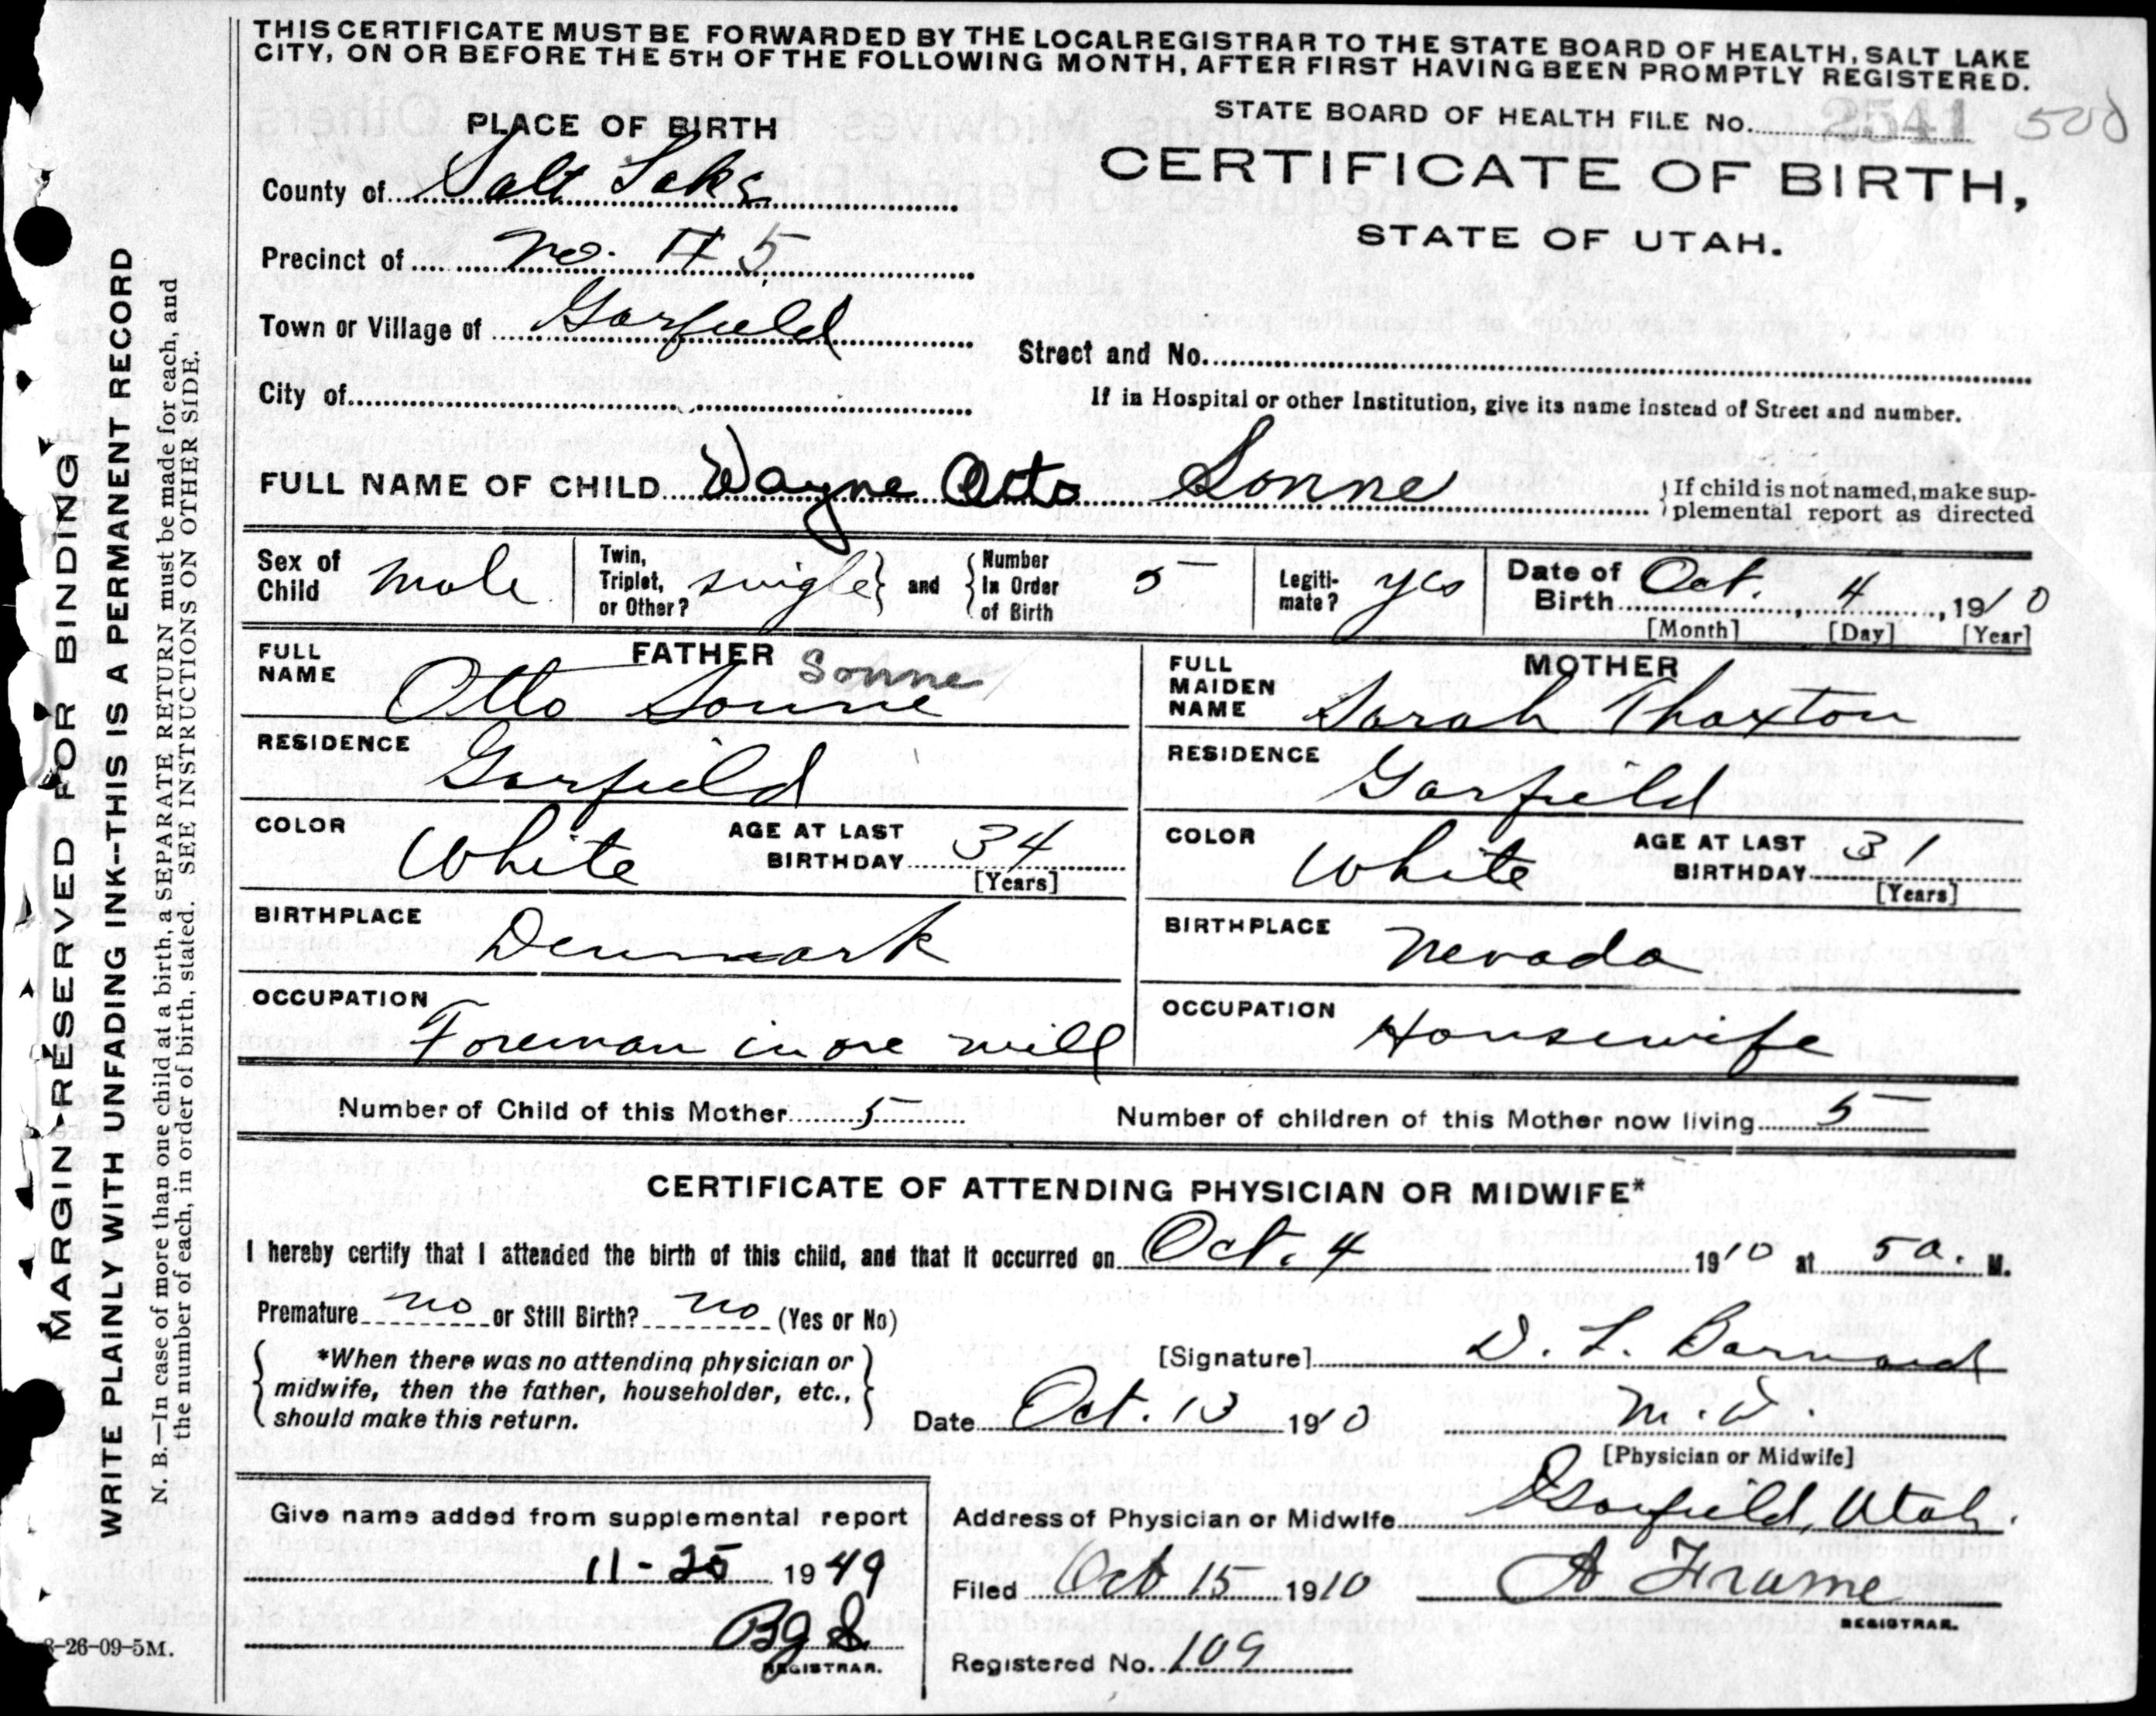 THIS CERTIFICATE MUST BE FORWARDED BY THE LOCAL REGISTRAR TO THE STATE BOARD OF HEALTH, SALT LAKE
CITY, ON OR BEFORE THE 5TH OF THE FOLLOWING MONTH, AFTER FIRST HAVING BEEN PROMPTLY REGISTERED.
STATE BOARD OF HEALTH FILE No. 2541 500
PLACE OF BIRTH
CERTIFICATE OF BIRTH,
STATE OF UTAH.
County of Salt Lake
Precinct of no. # 5
Town or Village of Garfield
Street and No.
City of
If in Hospital or other Institution, give its name instead of Street and number.
FULL NAME OF CHILD Wayne Otto Sonne
If child is not named, make sup-
plemental report as directed
Sex of Child male
Twin, Triplet, or Other? single and
Number In Order of Birth 5
Legiti-mate? yes
Date of Birth Oct. 4, 1910
[Month] [Day] [Year]
FATHER
FULL NAME Otto Sonne Sonne
RESIDENCE Garfield
COLOR White
AGE AT LAST BIRTHDAY 34
[Years]
BIRTHPLACE Denmark
OCCUPATION Foreman in ore mill
MOTHER
FULL MAIDEN NAME Sarah Thaxton
RESIDENCE Garfield
COLOR White
AGE AT LAST BIRTHDAY 31
[Years]
BIRTHPLACE Nevada
OCCUPATION Housewife
Number of Child of this Mother 5
Number of children of this Mother now living 5
CERTIFICATE OF ATTENDING PHYSICIAN OR MIDWIFE*
I hereby certify that I attended the birth of this child, and that it occurred on Oct. 4 1910 at 5 a. M.
Premature no or Still Birth? no (Yes or No)
*When there was no attending physician or
midwife, then the father, householder, etc.,
should make this return.
[Signature] D. L. Barnard
Date Oct. 13 1910
M.D.
[Physician or Midwife]
Give name added from supplemental report
11-25 1949
BGS
REGISTRAR.
Address of Physician or Midwife Garfield, Utah.
Filed Oct 15 1910
A Frame
REGISTRAR.
Registered No. 109
MARGIN RESERVED FOR BINDING
WRITE PLAINLY WITH UNFADING INK--THIS IS A PERMANENT RECORD
N. B.—In case of more than one child at a birth, a SEPARATE RETURN must be made for each, and
the number of each, in order of birth, stated. SEE INSTRUCTIONS ON OTHER SIDE.
-26-09-5M.